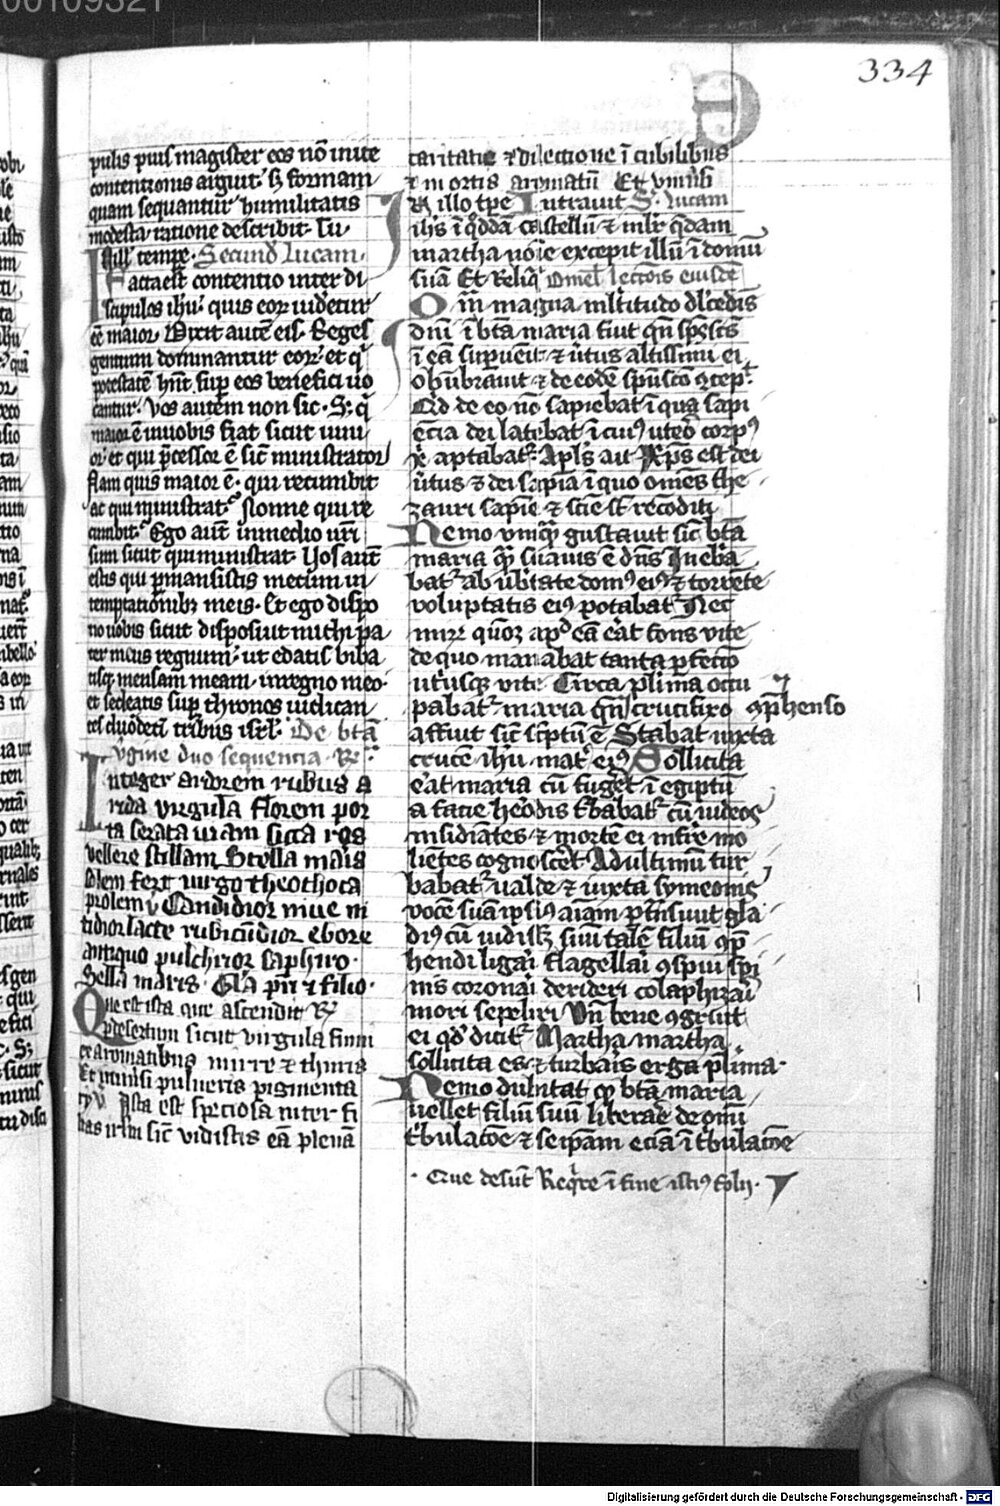 00109321
334
pulis pius magister eos nō inuite
contentionis arguit· ſꝫ formam
quam sequantur humilitatis
modesta ratione describit· Lu·
In ill' tempe· Secund' Lucam·
Facta est contentio inter di
scipulos ihu· quis eoꝝ uidetur
eē maior· Dixit autē eis· Reges
gentium dominantur eoꝝ· et qͥ
potestatē hn̄t sup eos benefici uo
cantur· Vos autem non sic· S; qͥ
maior ē in uobis fiat sicut iuni
or· et qui p̄cessor ē sic̄ ministrator
Nam quis maior ē· qui recumbit
ac qui ministrat· Nonne qui re
cumbit· Ego aut̄ in medio ur̄i
sum sicut qui ministrat· Uos aut̄
estis qui p̱mansistis mecum in
temptationibꝫ meis· Et ego dispo
no uobis sicut disposuit michi pa
ter meus regnum· ut edatis biba
tisqꝫ mensam meam· in regno meo·
et sedeatis sup thronos iudican
tes duodecī tribus isrl'· De btā
v̄gine duo sequencia· R·
Integer ardorem rubus a
rida virgula florem por
ta serata uiam sicca ros
vellere stillam Stella maris
solem fert uirgo theothoca
prolem v̄ Candidior niue ni
tidior lacte rubicūdior ebore
antiquo pulchrior saphiro·
Stella maris· Gl'a pr̄i ⁊ filio·
Que est ista que ascendit R̄
p̱ desertum sicut virgula fumi
ex aromatibus mirre ⁊ thuris
Et uniuersi pulueris pigmenta
rij V̄ Ista est speciosa inter fi
lias ir̄lm sic̄ vidistis eā plenā
caritate ⁊ dilectione ī cubilibus
⁊ in ortis aromatū Et vniu'si
In illo tp̄e Intrauit S· Lucam
ih's ī qddā castellū ⁊ ml'r qdam
martha noīe excepit illū ī domū
suā Et Reliqͣ Omel' lectoīs eiusdē
Om̄ magna ml'titudo dl'cedīs
dn̄i ī btā maria fuit qn̄ sp̄s scs
ī eā supuēit· ⁊ uītus altissimi ei
obūbrauit ⁊ de eodē sp̄u scō ꝯcep·
Qd de eo nō sapiebat ī qua sapi
ēcia dei latebat ī cui' utero corp'
x̄ aptabat'· Apl's au' Xp̄s est dei
ūtus ⁊ dei sapīa ī quo om̄es the
zauri sapīe ⁊ sciē sͭ recōditi
Nemo vnqͣ gustauit sic̄ btā
maria qͣ suauis ē dn̄s Inebria
bat' ab ub'tate dom' ei' ⁊ torrēte
voluptatis ei' potabat' Nec
mirū quoꝝ apd' eā erat fons vite
de quo manabat tanta p̱fectō
utriusqꝫ vite· Circa pl'ima occu
pabat' maria qn̄ crucifixo ꝯp̱henso
affuit sic̄ sc̄ptū ē Stabat iuxta
crucē ihū mat' ei' Sollicita
erat maria cū fuger' ī egiptū
a facie herodis t'babat' cū iudeos
insidiātes ⁊ morte ei inferre mo
liētes cognoscēt' Ad ultimū tur
babat' ualde ⁊ iuxta symeonis
vocē suā ipsi' aīam p̱t'nsiuit gla
di' cū uidisset suū talē filiū ꝯp̱
hendi ligari flagellari ꝯspui spi
nis coronari derideri colaphizari
mori sepeliri Vn̄ bene ꝯgruit
ei qd' dicit' Martha martha
sollicita es ⁊ turbaris erga pl'ima·
Nemo dubitat qͩ btā maria
uellet filiū suū liberare de om̄i
t'bulacōe ⁊ seipam eciā ī t'bulacōe
· Que desūt Req̄re ī fine isti' folij·
Digitalisierung gefördert durch die Deutsche Forschungsgemeinschaft - DFG